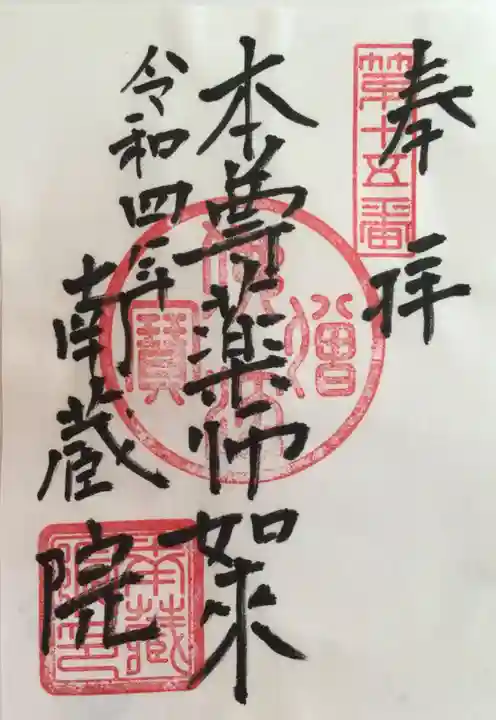 奉拝
第十五番
本尊薬師如来
令和四年
南蔵院
佛法僧寶
南蔵院